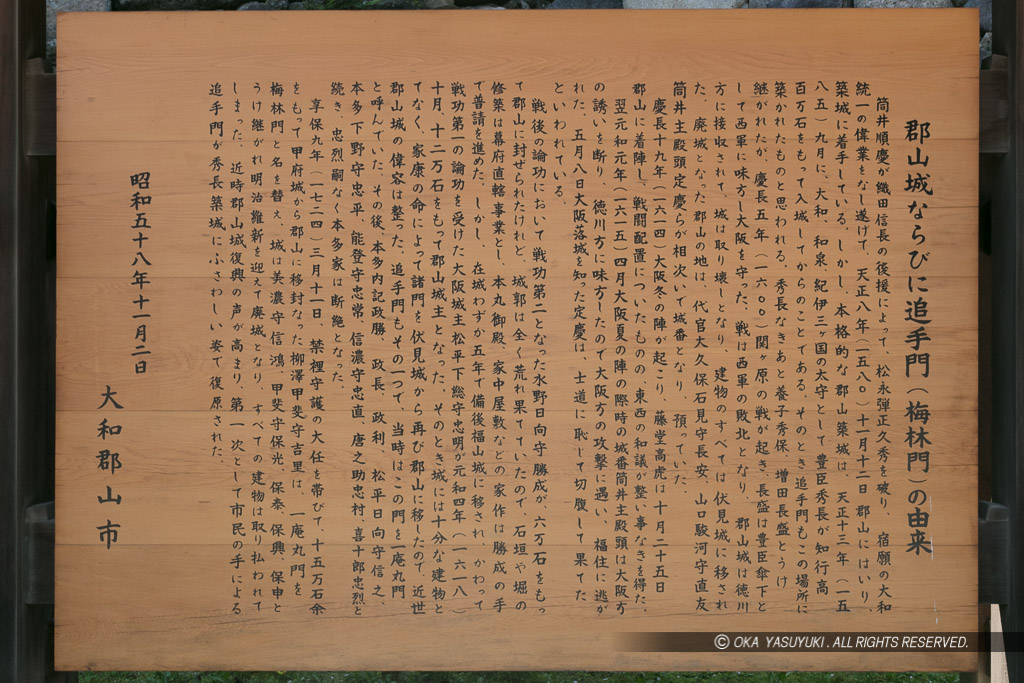 郡山城ならびに追手門（梅林門）の由来
筒井順慶が織田信長の後援によって、松永弾正久秀を破り、宿願の大和
統一の偉業をなし遂げて、天正八年（一五八〇）十一月十二日 郡山にはいり、
築城に着手している。しかし、本格的な郡山築城は、天正十三年（一五
八五）九月に、大和、和泉、紀伊三ヶ国の太守として豊臣秀長が知行高
百万石をもって入城してからのことである。そのとき追手門もこの場所に
築かれたものと思われる。秀長なきあと養子秀保、増田長盛とうけ
継がれたが、慶長五年（一六〇〇）関ヶ原の戦が起き、長盛は豊臣傘下と
して西軍に味方し大阪を守った。戦は西軍の敗北となり、郡山城は徳川
方に接収されて、城は取り壊しとなり、建物のすべては伏見城に移され
た。廃城となった郡山の地は、代官大久保石見守長安、山口駿河守直友
筒井主殿頭定慶らが相次いで城番となり、預っていた。
慶長十九年（一六一四）大阪冬の陣が起こり、藤堂高虎は十月二十五日
郡山に着陣し、戦闘配置についたものの、東西の和議が整い事なきを得た。
翌元和元年（一六一五）四月大阪夏の陣の際時の城番筒井主殿頭は大阪方
の誘いを断り、徳川方に味方したので大阪方の攻撃に遇い、福住に逃が
れた。五月八日大阪落城を知った定慶は、士道に恥じて切腹して果てた
といわれている。
戦後の論功において戦功第二となった水野日向守勝成が、六万石をもっ
て郡山に封ぜられたけれど、城郭は全く荒れ果てていたので、石垣や堀の
修築は幕府直轄事業とし、本丸御殿、家中屋敷などの家作は勝成の手
で普請を進めた。しかし、在城わずか五年で備後福山城に移され、かわって
戦功第一の論功を受けた大阪城主松平下総守忠明が元和四年（一六一八）
十月、十二万石をもって郡山城主となった。そのとき城には十分な建物と
てなく、家康の命によって諸門を伏見城から再び郡山に移したので、近世
郡山城の偉容は整った。追手門もその一つで、当時はこの門を一庵丸門
と呼んでいた。その後、本多内記政勝、政長、政利、松平日向守信之、
本多下野守忠平、能登守忠常、信濃守忠直、唐之助忠村、喜十郎忠烈と
続き、忠烈嗣なく本多家は断絶となった。
享保九年（一七二四）三月十一日、禁裡守護の大任を帯びて、十五万石余
をもって甲府城から郡山に移封なった柳澤甲斐守吉里は、一庵丸門を
梅林門と名を替え、城は美濃守信鴻、甲斐守保光、保泰、保興、保申と
うけ継がれ明治維新を迎えて廃城となり、すべての建物は取り払われて
しまった。近時郡山城復興の声が高まり、第一次として市民の手による
追手門が秀長築城にふさわしい姿で復原された。
昭和五十八年十一月二日
大和郡山市
© OKA YASUYUKI. ALL RIGHTS RESERVED.